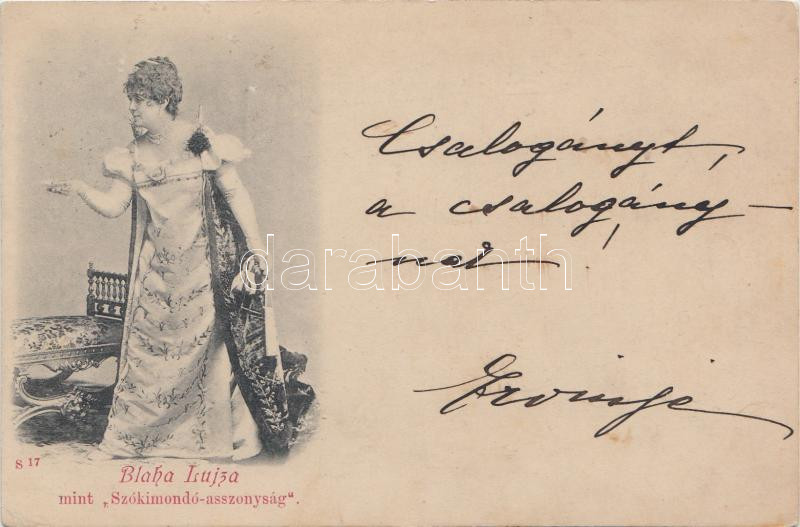 Csalogányt,
a csalogány-
nak!
S 17
Blaha Lujza
mint „Szókimondó-asszonyság".
darabanth